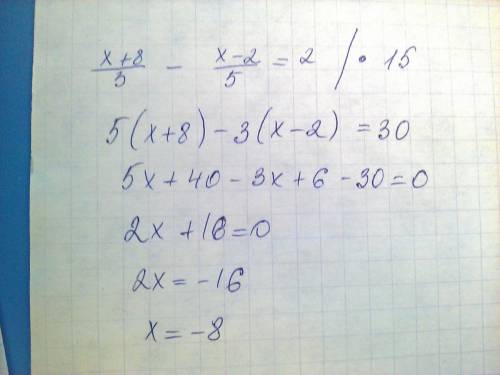 (x+8)/3 - (x-2)/5 = 2 / · 15
5(x+8)-3(x-2) = 30
5x+40-3x+6-30=0
2x+16=0
2x=-16
x=-8